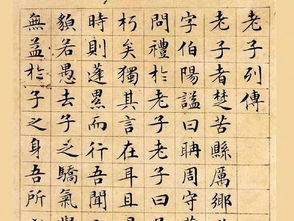 老子列傳
老子者楚苦縣厲鄉
字伯陽謚曰聃周守
問禮於老子老子曰
朽矣獨其言在耳且
時則蓬累而行吾聞
䫉若愚去子之驕氣
無益於子之身吾所